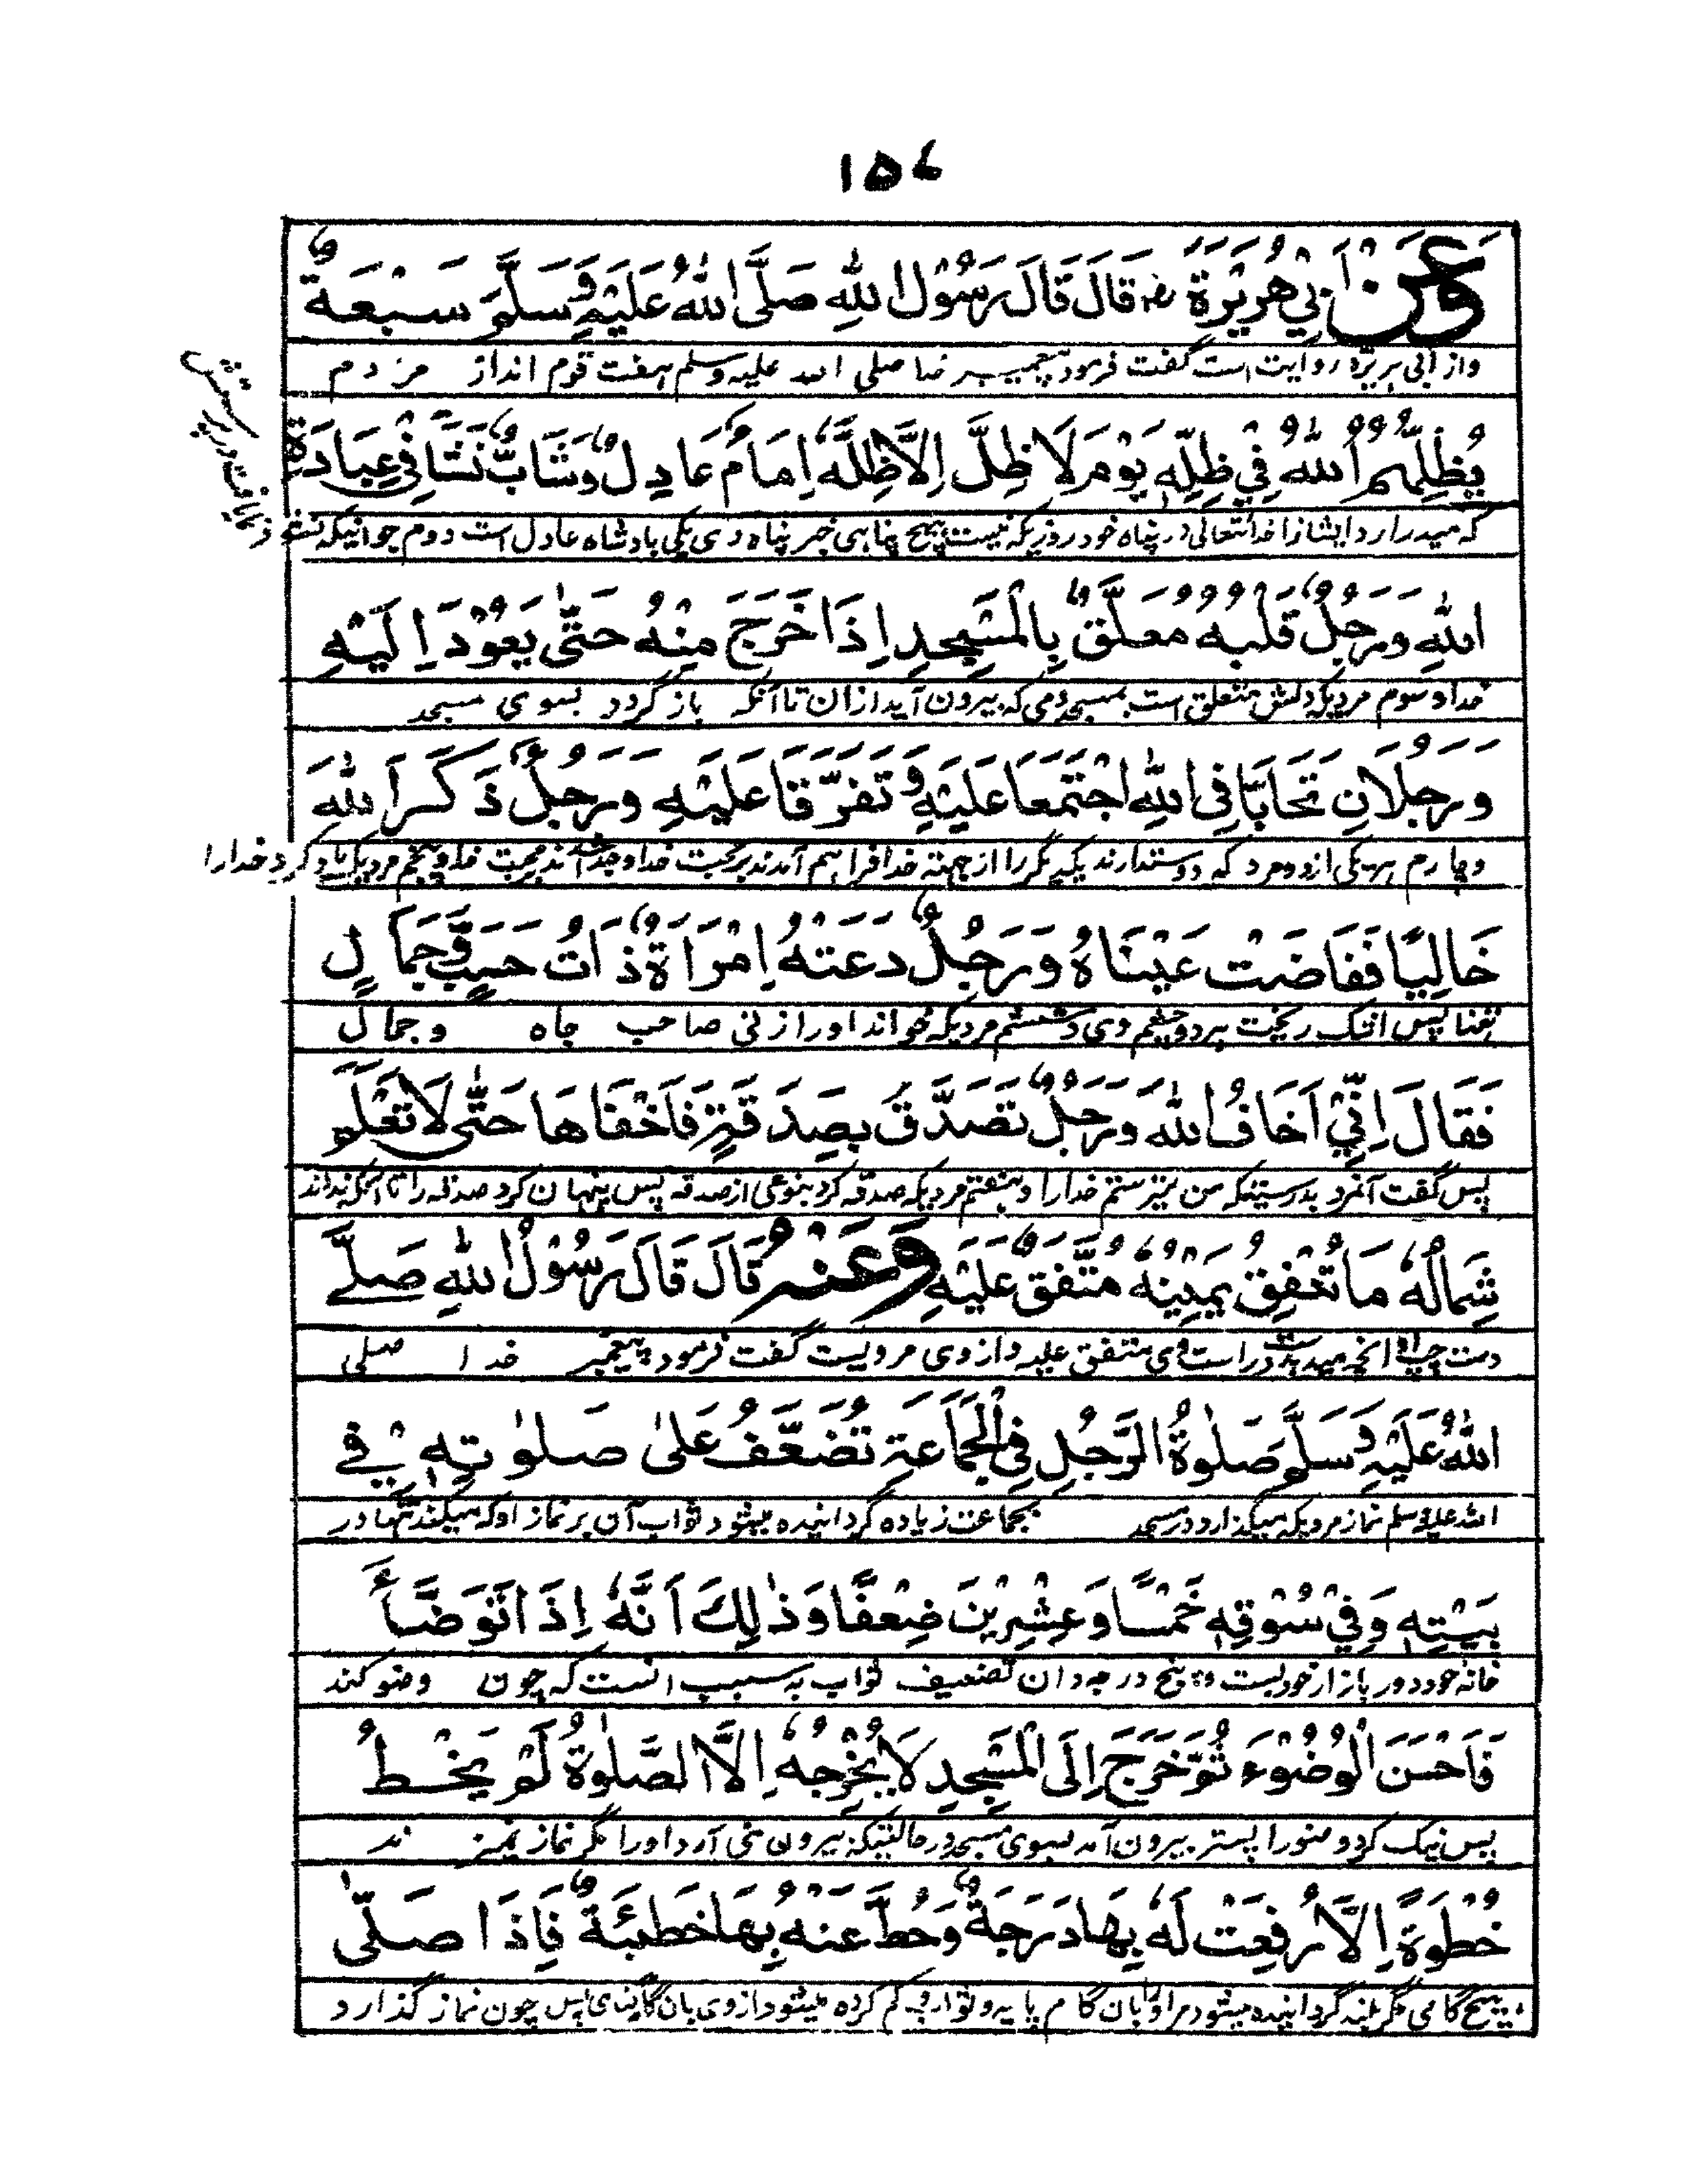 ۱۵۴
وَعَنْ اَبِيْ هُرَيْرَةَ رضـ قَالَ قَالَ رَسُوْلُ اللهِ صَلَّى اللهُ عَلَيْهِ وَسَلَّمَ سَبْعَةٌ
و از ابی هریره روایت است گفت فرمود پیغمبر خدا صلی الله علیه وسلم هفت قوم اند از مردم
يُظِلُّهُمُ اللهُ فِيْ ظِلِّهٖ يَوْمَ لَا ظِلَّ اِلَّا ظِلُّهٗ اِمَامٌ عَادِلٌ وَشَابٌّ نَشَأَ فِيْ عِبَادَةِ
که میدارد ایشانرا خدایتعالی در پناه خود روزیکه نیست هیچ پناهی جز پناه وی یکی بادشاه عادل است دوم جوانیکه نشو و نما یافت در پرستش
اللهِ وَرَجُلٌ قَلْبُهٗ مُعَلَّقٌ بِالْمَسْجِدِ اِذَا خَرَجَ مِنْهُ حَتّٰى يَعُوْدَ اِلَيْهِ
خدا و سوم مردیکه دلش متعلق است بمسجد دمی که بیرون آید ازان تا آنکه باز گردد بسوی مسجد
وَرَجُلَانِ تَحَابَّا فِي اللهِ اجْتَمَعَا عَلَيْهِ وَتَفَرَّقَا عَلَيْهِ وَرَجُلٌ ذَكَرَ اللهَ
و چهارم هر یکی از دو مرد که دوستدارند یکدیگر را از جهته خدا فراهم آمدند بر محبت خدا و جدا شدند بر محبت خدا و پنجم مردیکه یاد کرد خدا را
خَالِيًا فَفَاضَتْ عَيْنَاهُ وَرَجُلٌ دَعَتْهُ اِمْرَاَةٌ ذَاتُ حَسَبٍ وَّجَمَالٍ
تنها پس اشک ریخت هر دو چشم وی و ششم مردیکه خواند او را زنی صاحب جاه و جمال
فَقَالَ اِنِّيْ اَخَافُ اللهَ وَرَجُلٌ تَصَدَّقَ بِصَدَقَةٍ فَاَخْفَاهَا حَتّٰى لَا تَعْلَمَ
پس گفت آنمرد بدرستیکه من میترسم خدا را و هفتم مردیکه صدقه کرد بنوعی از صدقه پس پنهان کرد صدقه را تا آنکه نداند
شِمَالُهٗ مَا تُنْفِقُ يَمِيْنُهٗ مُتَّفَقٌ عَلَيْهِ وَعَنْهُ قَالَ قَالَ رَسُوْلُ اللهِ صَلَّى
دست چپ او انچه میدهد دست راست وی متفق علیه و از وی مرویست گفت فرمود پیغمبر خدا صلی
اللهُ عَلَيْهِ وَسَلَّمَ صَلٰوةُ الرَّجُلِ فِي الْجَمَاعَةِ تُضَعَّفُ عَلٰى صَلٰوتِهٖ فِيْ
الله علیه وسلم نماز مردیکه میگذارد در مسجد بجماعت زیاده گردانیده میشود ثواب آن بر نماز او که میکند تنها در
بَيْتِهٖ وَفِيْ سُوْقِهٖ خَمْسًا وَعِشْرِيْنَ ضِعْفًا وَذٰلِكَ اَنَّهٗ اِذَا تَوَضَّأَ
خانه خود و در بازار خود بست و پنج درجه و ان تضعیف ثواب به سبب انست که چون وضو کند
فَاَحْسَنَ الْوُضُوْءَ ثُمَّ خَرَجَ اِلَى الْمَسْجِدِ لَا يُخْرِجُهٗ اِلَّا الصَّلٰوةُ لَمْ يَخْطُ
پس نیک کرد وضو را پستر بیرون آمد بسوی مسجد در حالتیکه بیرون نمی آرد او را مگر نماز نمیزند
خُطْوَةً اِلَّا رُفِعَتْ لَهٗ بِهَا دَرَجَةٌ وَحُطَّ عَنْهُ بِهَا خَطِيْئَةٌ فَاِذَا صَلّٰى
هیچ گامی مگر بلند گردانیده میشود مر او را بان گام پایه و ثواب و کم کرده میشود از وی بان گام گناهی پس چون نماز گذارد